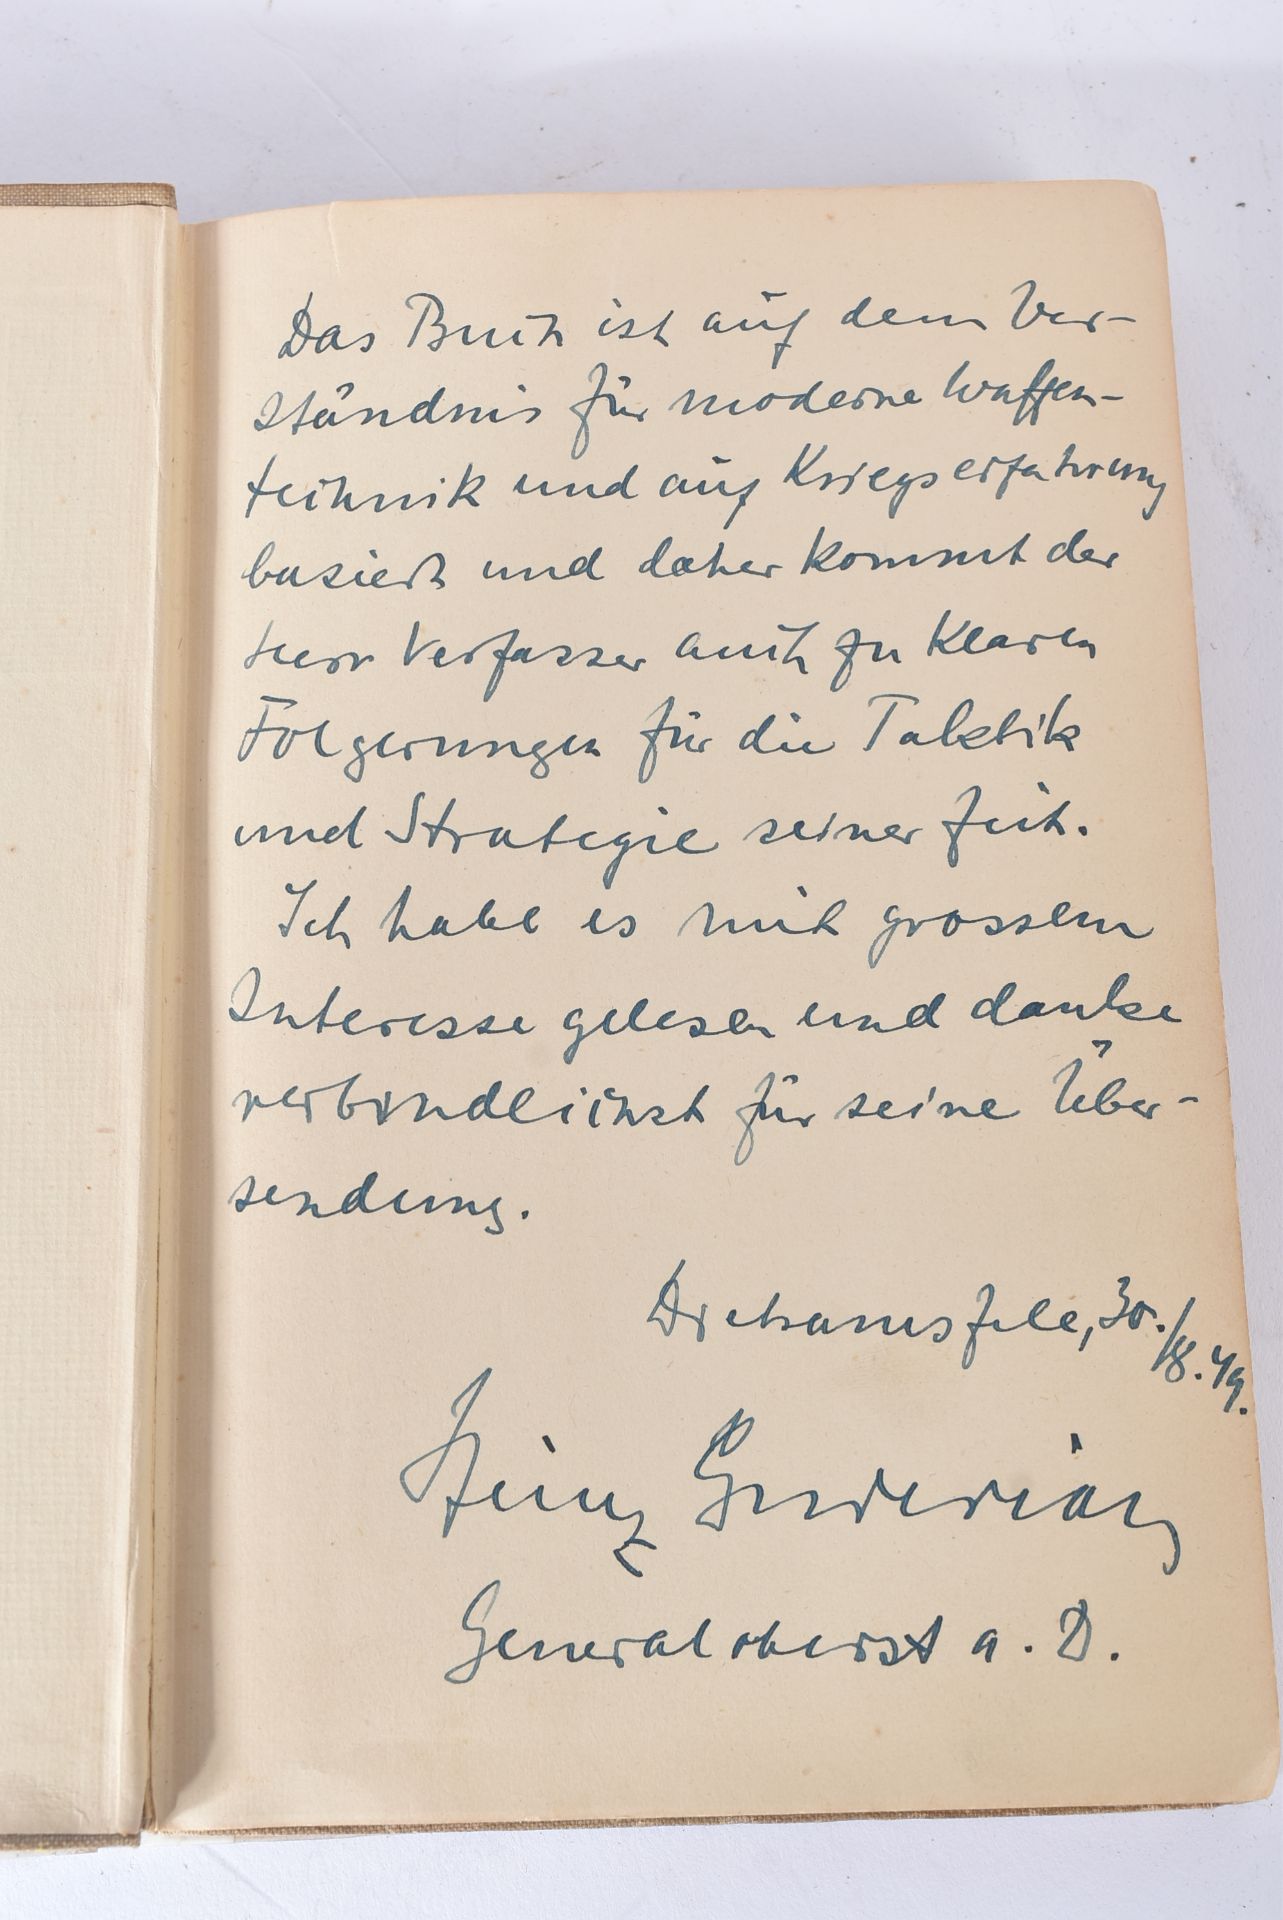 Das Buch ist auf dem Ver-
ständnis für moderne Waffen-
technik und auf Kriegserfahrung
basiert und daher kommt der
Herr Verfasser auch zu klaren
Folgerungen für die Taktik
und Strategie seiner Zeit.
Ich habe es mit grossem
Interesse gelesen und danke
verbindlichst für seine Über-
sendung.
30./8.49.
Heinz Guderian
Generaloberst a. D.